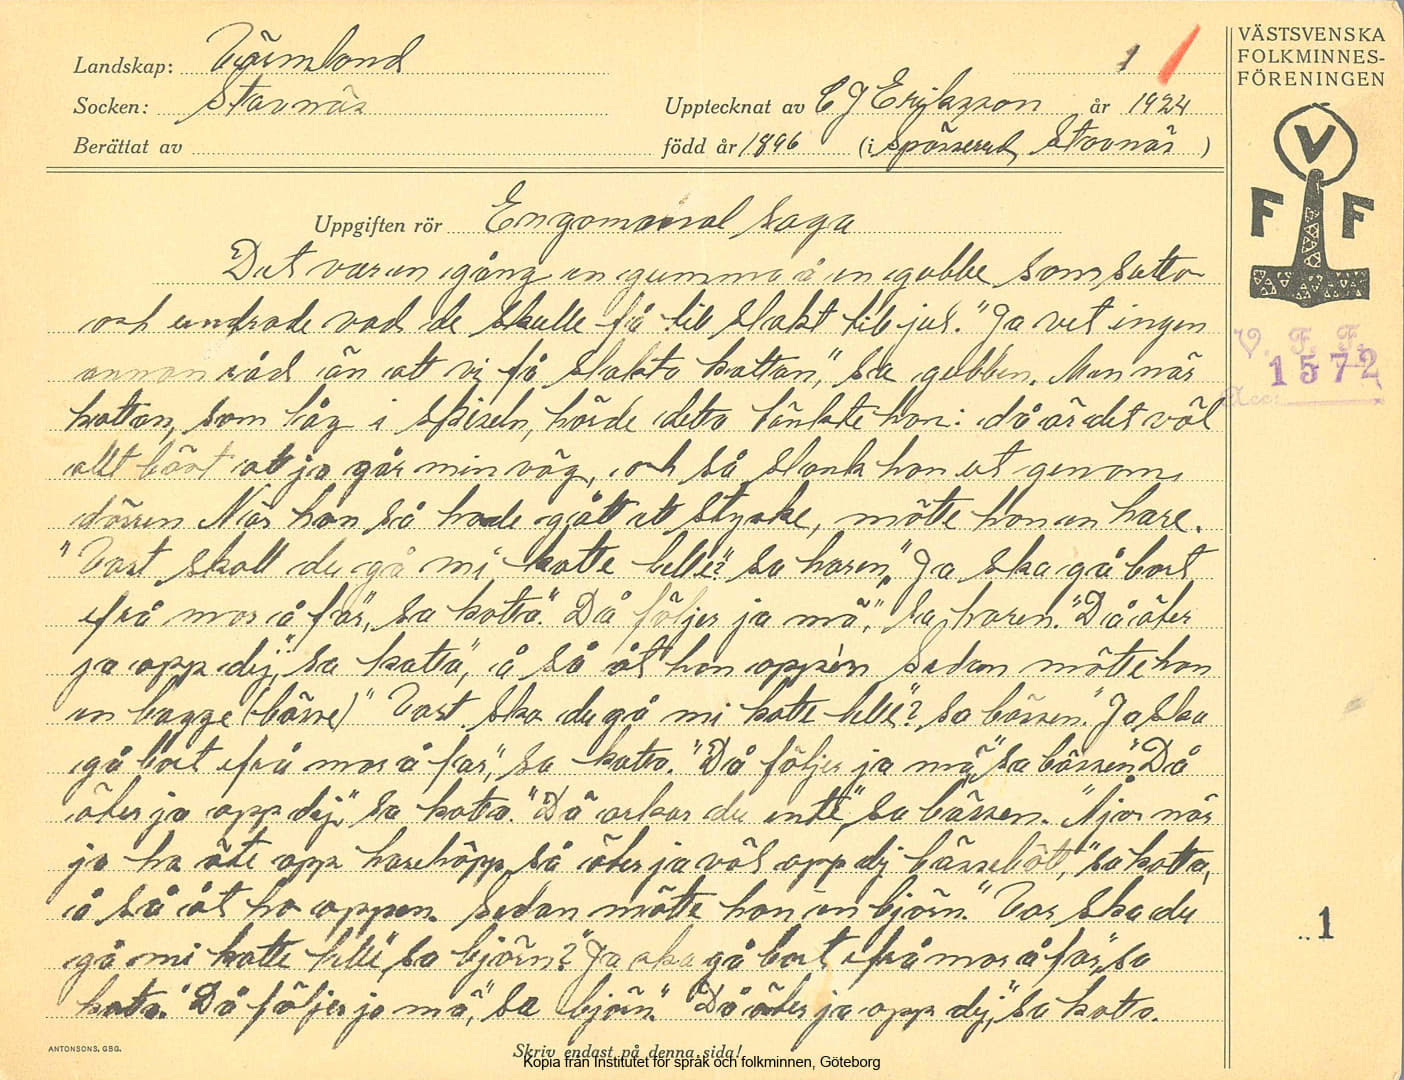 Landskap: Värmland
Socken: Stavnäs
Berättat av
1
Upptecknat av C J Eriksson år 1924
född år 1896 (i Spässerud, Stavnäs)
VÄSTSVENSKA
FOLKMINNES-
FÖRENINGEN
V
F F
V. F. F.
1572
Acc:
Uppgiften rör En gammal saga
Det var en gång en gumma å en gubbe som satto
och undrade vad de skulle få till slakt till jul." Ja vet ingen
annan råd än att vi få slakta kattan," sa gubben. Men när
kattan, som låg i spiseln, hörde detta tänkte hon: då är det väl
allt bäst att ja går min väg, och så slank hon ut genom
dörren När hon så hade gått ett stycke, mötte hon en hare.
"Vart skall du gå mi katte lelle?" sa haren. "Ja ska gå bort
ifrå mor å far", sa katta". Då följer ja mä," sa haren. "Då äter
ja opp dej," sa katta", å så åt hon oppen Sedan mötte hon
en bagge (bässe)" Vart ska du gå mi katte lelle"? sa bässen." Ja ska
gå bort ifrå mor å far," sa katta. "Då följer ja mä," sa bässen" Då
äter ja opp dej," sa katta. "Då orkar du inte," sa bässen. "Njo når
ja ha äte opp harehopp, så äter ja väl opp dej bässeböt", sa katta,
å så åt ho oppen. Sedan mötte hon en björn." Var ska du
gå mi katte lelle", sa björn?" Ja ska gå bort ifrå mor å far", sa
katta." Då följer ja mä," sa björn." "Då äter ja opp dej," sa katta.
1
ANTONSONS, GBG.
Skriv endast på denna sida!
Kopia från Institutet för språk och folkminnen, Göteborg